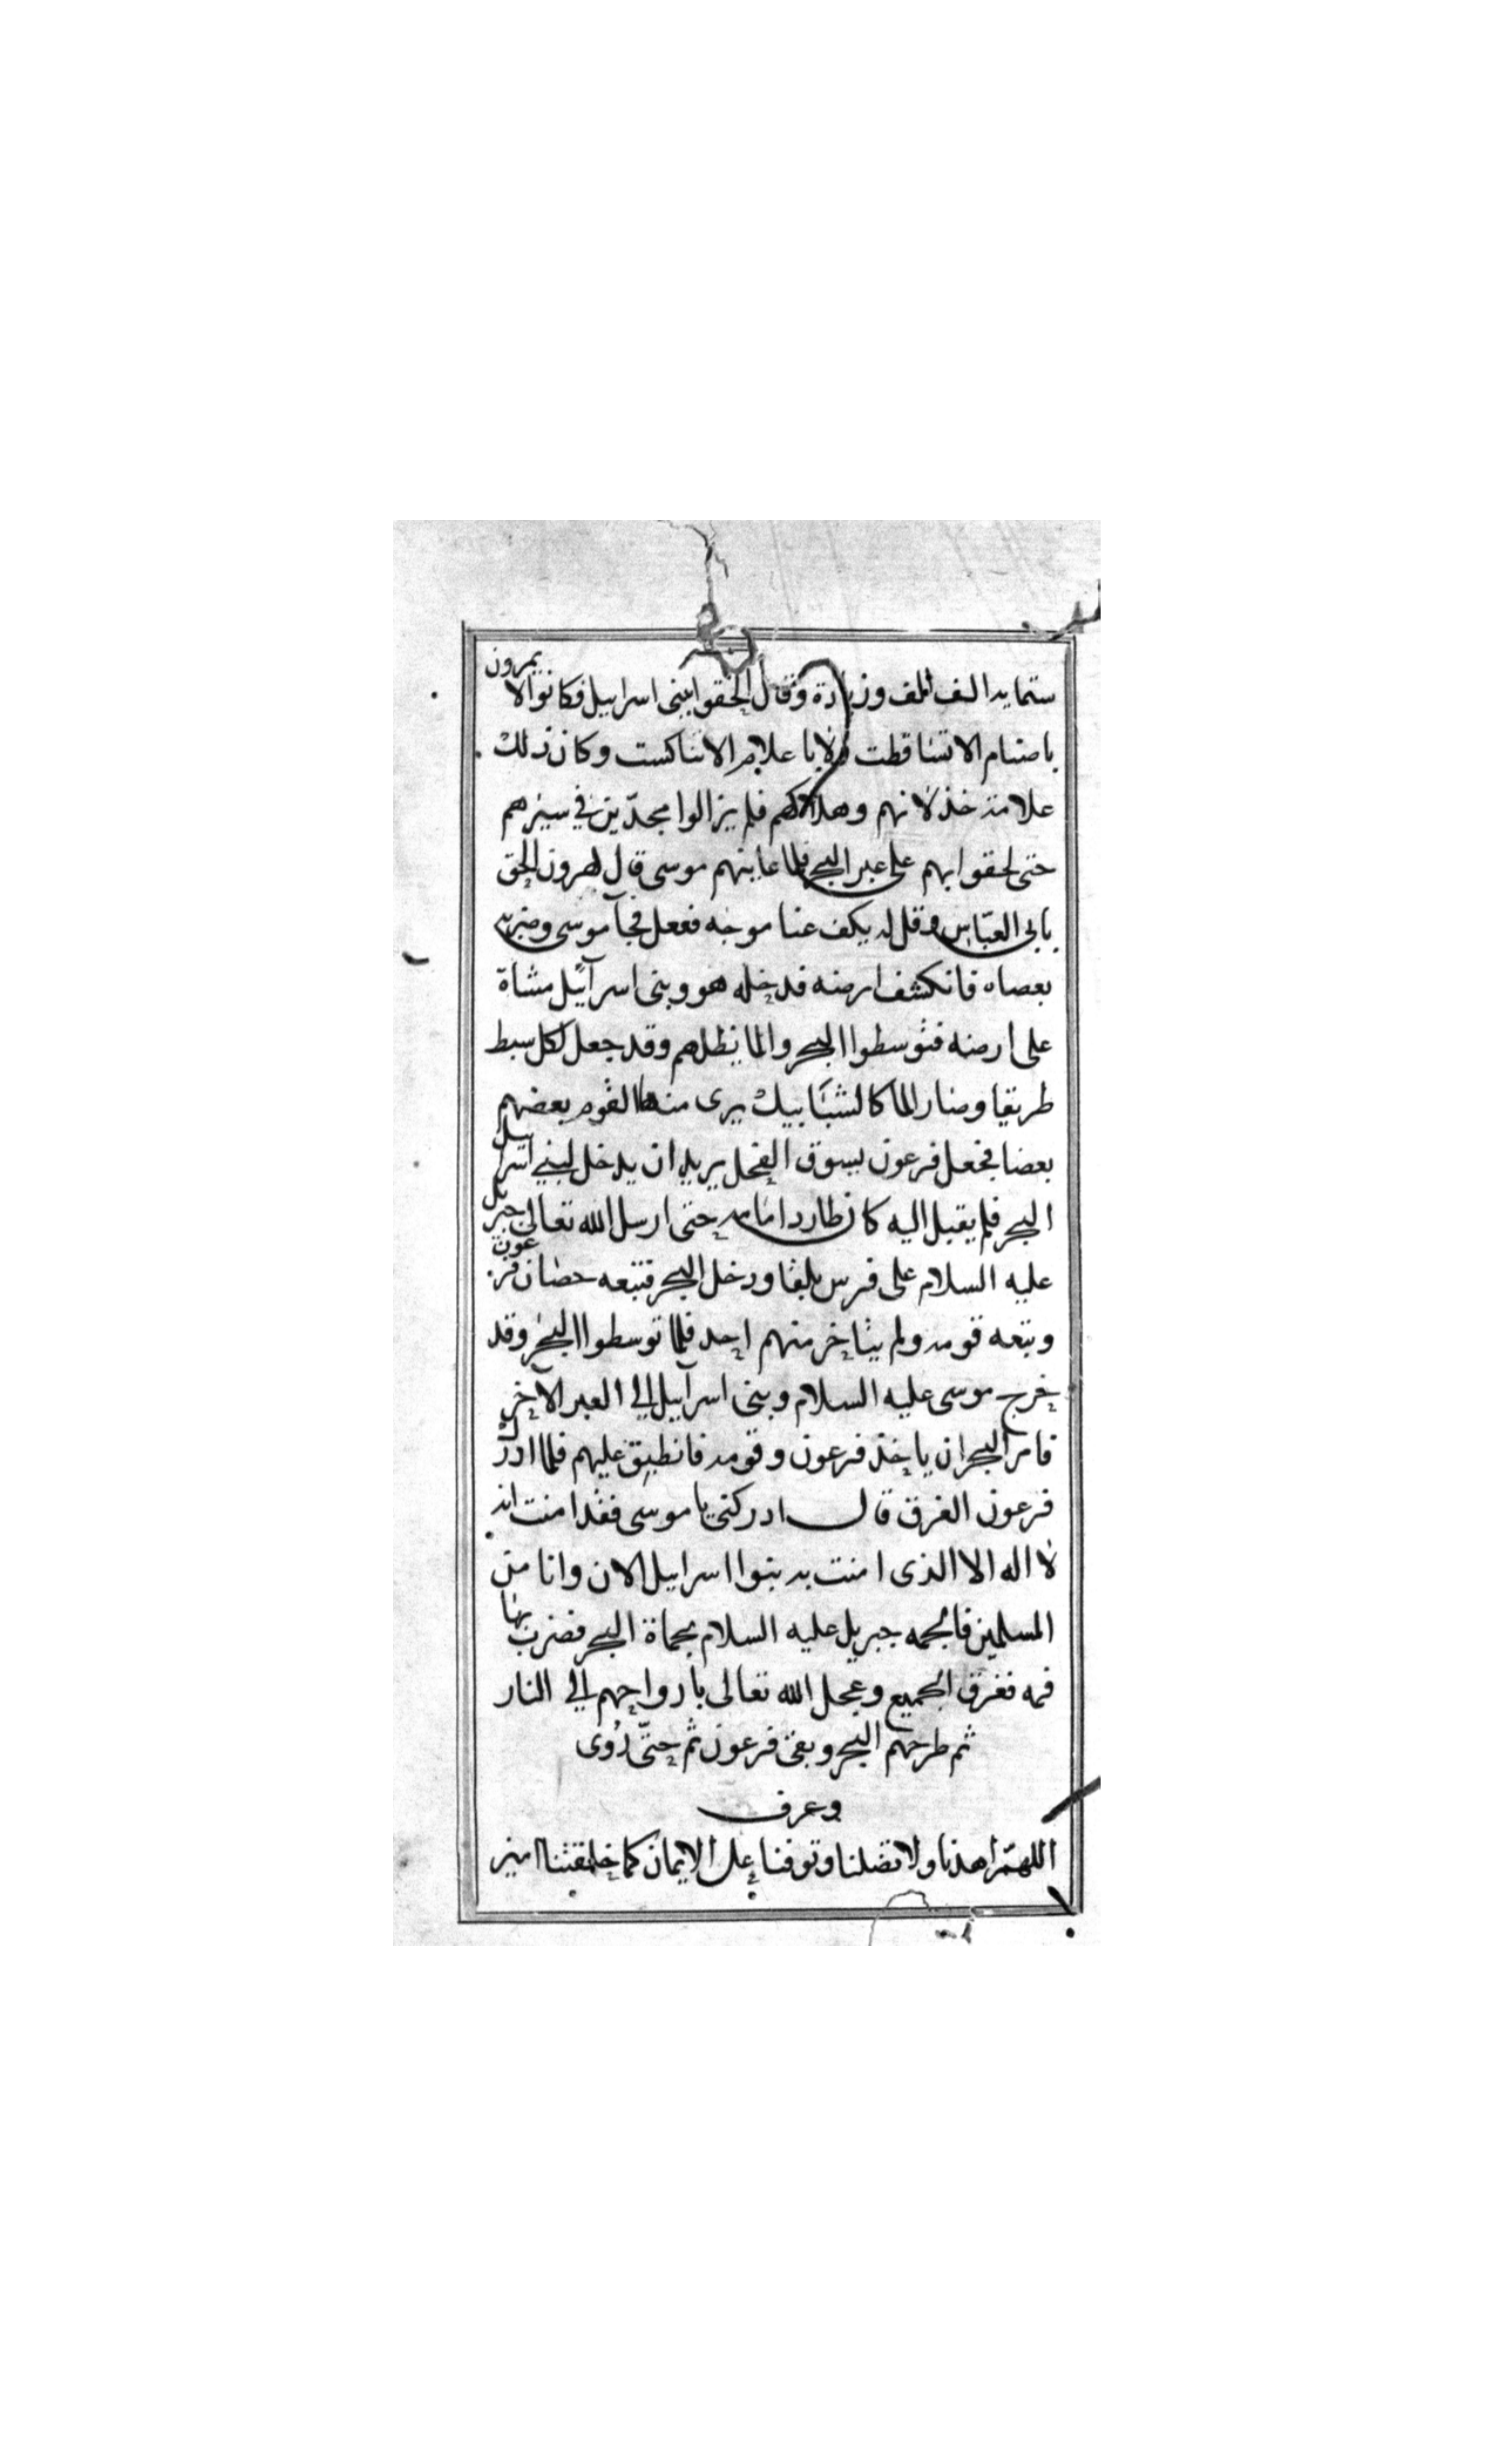 ستمايه الف الف وزيادة وقال الحقوا ببنى اسراييل فكانوا لا يمرون
باصنام الا تساقطت ولا باعلام الا تناكست وكان ذلك
علامة خذلانهم وهلاكهم فلم يزالوا مجدين في سيرهم
حتى لحقوا بهم على عبر البحر فلما عاينهم موسى قال لهرون الحق
بابى العباس وقل له يكف عنا موجه ففعل فجآ موسى وضربه
بعصاه فانكشف ارضه فدخله هو وبنى اسرآئيل مشاة
على ارضه فتوسطوا البحر والما يظلهم وقد جعل لكل سبط
طريقا وصار الما كالشبابيك يرى منها القوم بعضهم
بعضا فجعل فرعون يسوق الفحل يريد ان يدخل لبنى اسراييل
البحر فلم يقبل اليه كان طاردا امامه حتى ارسل الله تعالى جبريل
عليه السلام على فرس بلقا ودخل البحر فتبعه حصان فرعون
وتبعه قومه ولم يتاخر منهم احد فلما توسطوا البحر وقد
خرج موسى عليه السلام وبنى اسرآييل الى العبر الآخر
فامر البحر ان ياخذ فرعون وقومه فانطبق عليهم فلما ادرك
فرعون الغرق قال ادركنى يا موسى فقد امنت انه
لا اله الا الذى امنت به بنوا اسراييل الان وانا من
المسلمين فالجمه جبريل عليه السلام بحماة البحر فضرب بها
فمه فغرق الجميع وعجل الله تعالى بارواحهم الى النار
ثم طرحهم البحر وبقى فرعون ثم حتّى رُوى
وعرف
اللهمّ اهدنا ولا تضلنا وتوفنا على الايمان كما خلقتنا امين